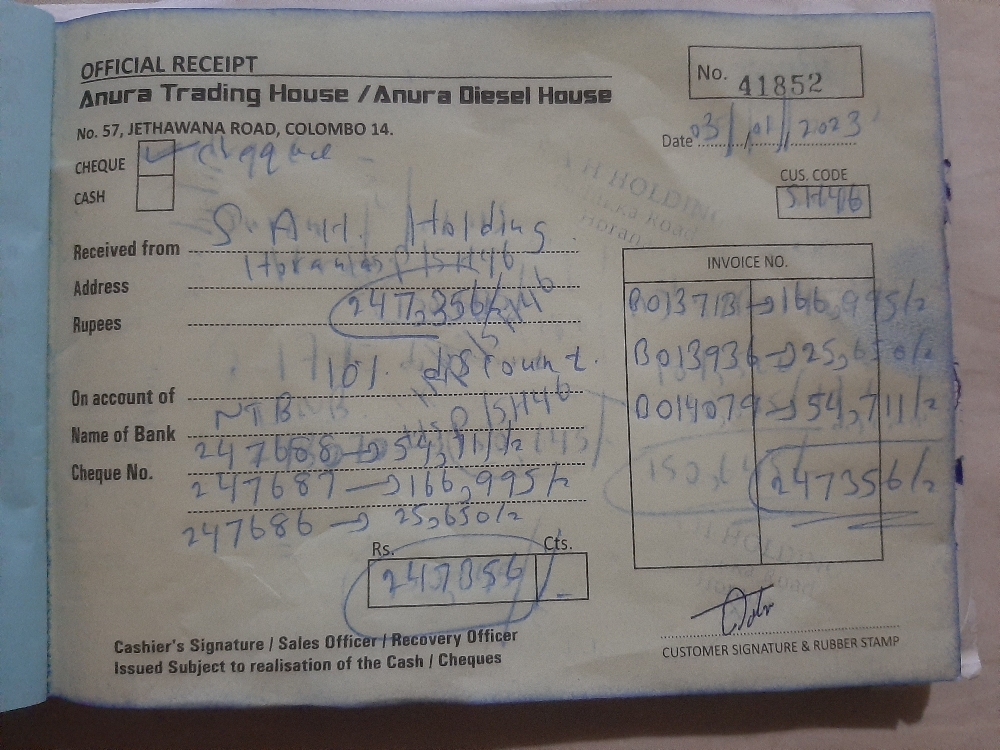 OFFICIAL RECEIPT
Anura Trading House / Anura Diesel House
No. 57, JETHAWANA ROAD, COLOMBO 14.
No. 41852
Date 03/01/2023
CHEQUE
CASH
CUS. CODE
SH46
Received from Holding
Address
Rupees 247,356/=
10% discount.
On account of
Name of Bank NTB
Cheque No.
247688 → 54,711/=
247687 → 166,995/=
247686 → 25,650/=
Rs. Cts.
247356/-
INVOICE NO.
B013713 → 166,995/=
B013936 → 25,650/=
B014079 → 54,711/=
247356/=
Cashier's Signature / Sales Officer / Recovery Officer
Issued Subject to realisation of the Cash / Cheques
CUSTOMER SIGNATURE & RUBBER STAMP